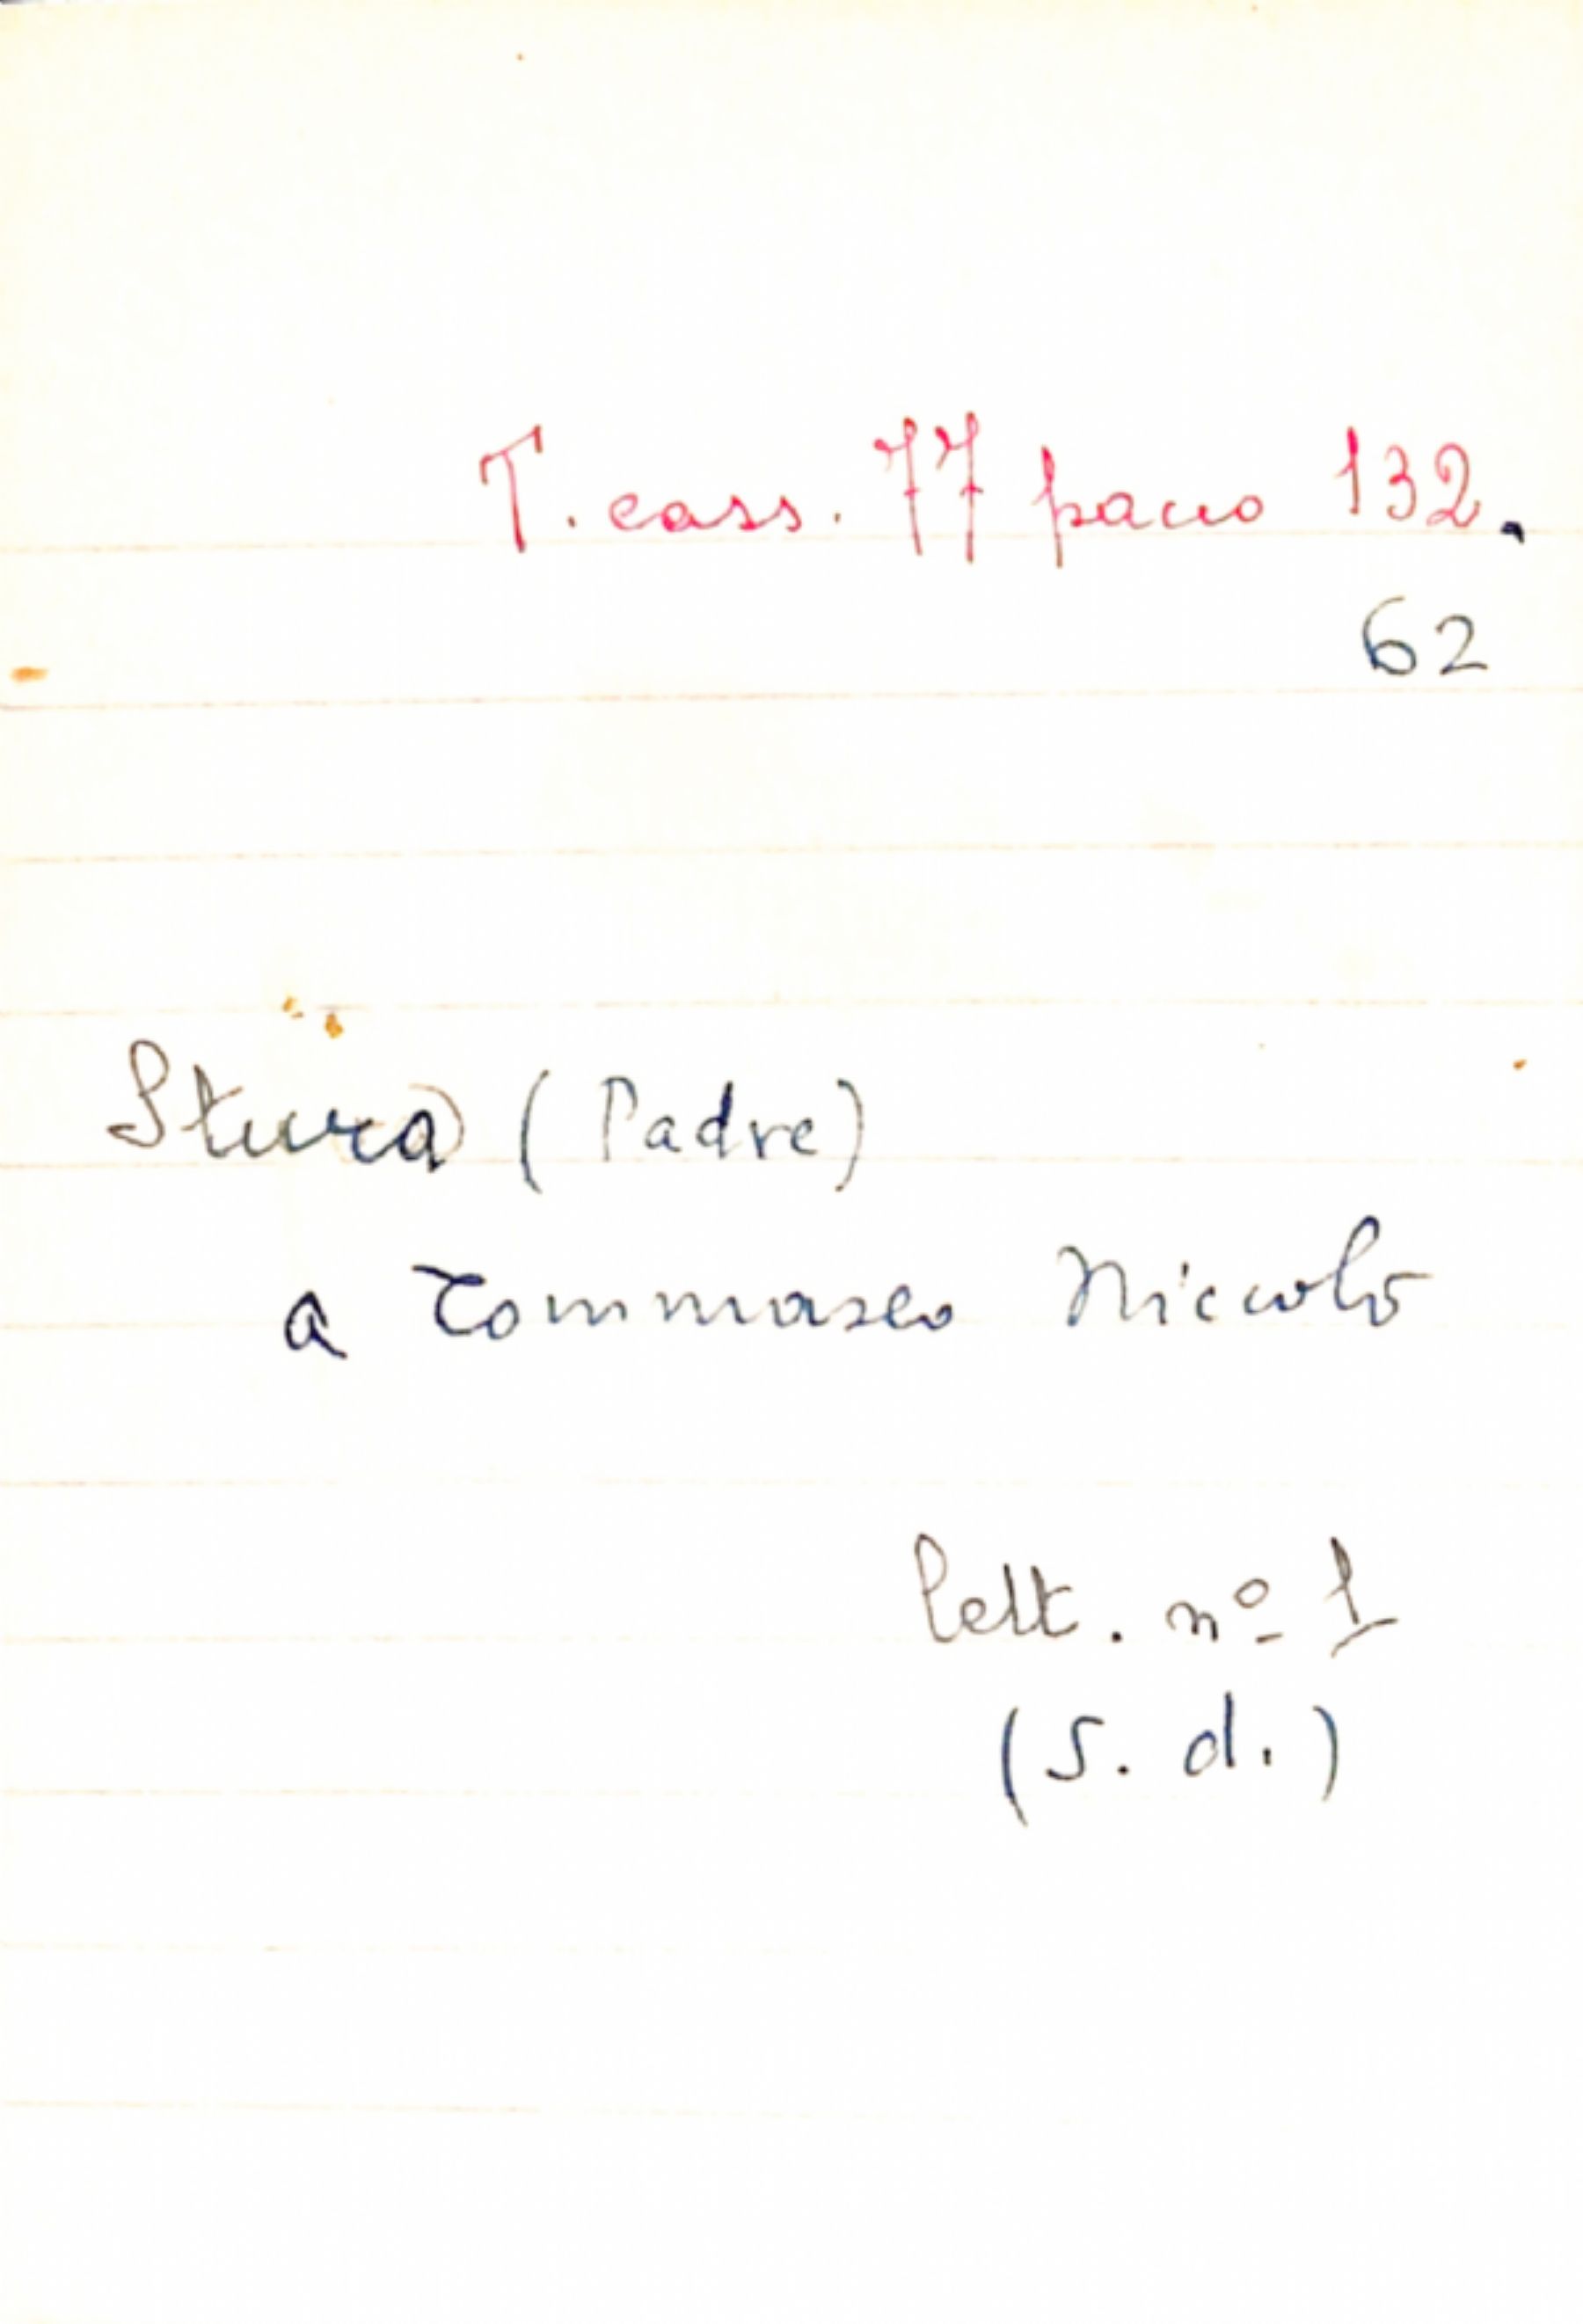 T. cass. 77 pacco 132.
62
Stura (Padre)
a Tommaseo Niccolò
lett. nº 1
(s. d.)